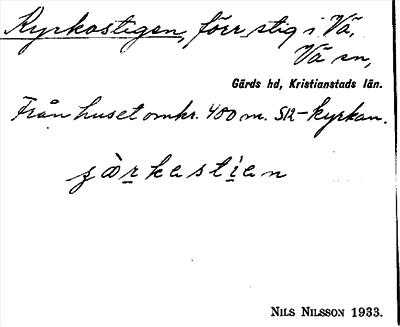 Kyrkostigen, förr stig i Vä,
Vä sn,
Gärds hd, Kristianstads län.
Från huset omkr. 400 m. SR-kyrkan.
NILS NILSSON 1933.